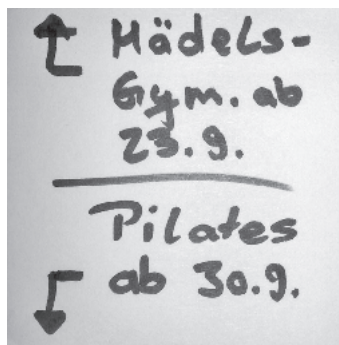 Mädels-
Gym. ab
23.9.
Pilates
ab 30.9.